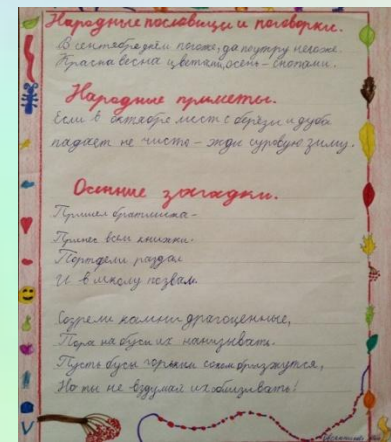 Народные пословицы и поговорки.
В сентябре днём погоже, да поутру негоже.
Красна весна цветами, осень - снопами.
Народные приметы.
Если в октябре лист с берёзы и дуба
падает не чисто - жди суровую зиму.
Осенние загадки.
Пришел братишка -
Принес всем книжки.
Портфели раздал
И в школу позвал.
Созрели камни драгоценные,
Пора на бусы их нанизывать.
Пусть бусы горьким соком брызжутся,
Но ты не вздумай их облизывать!